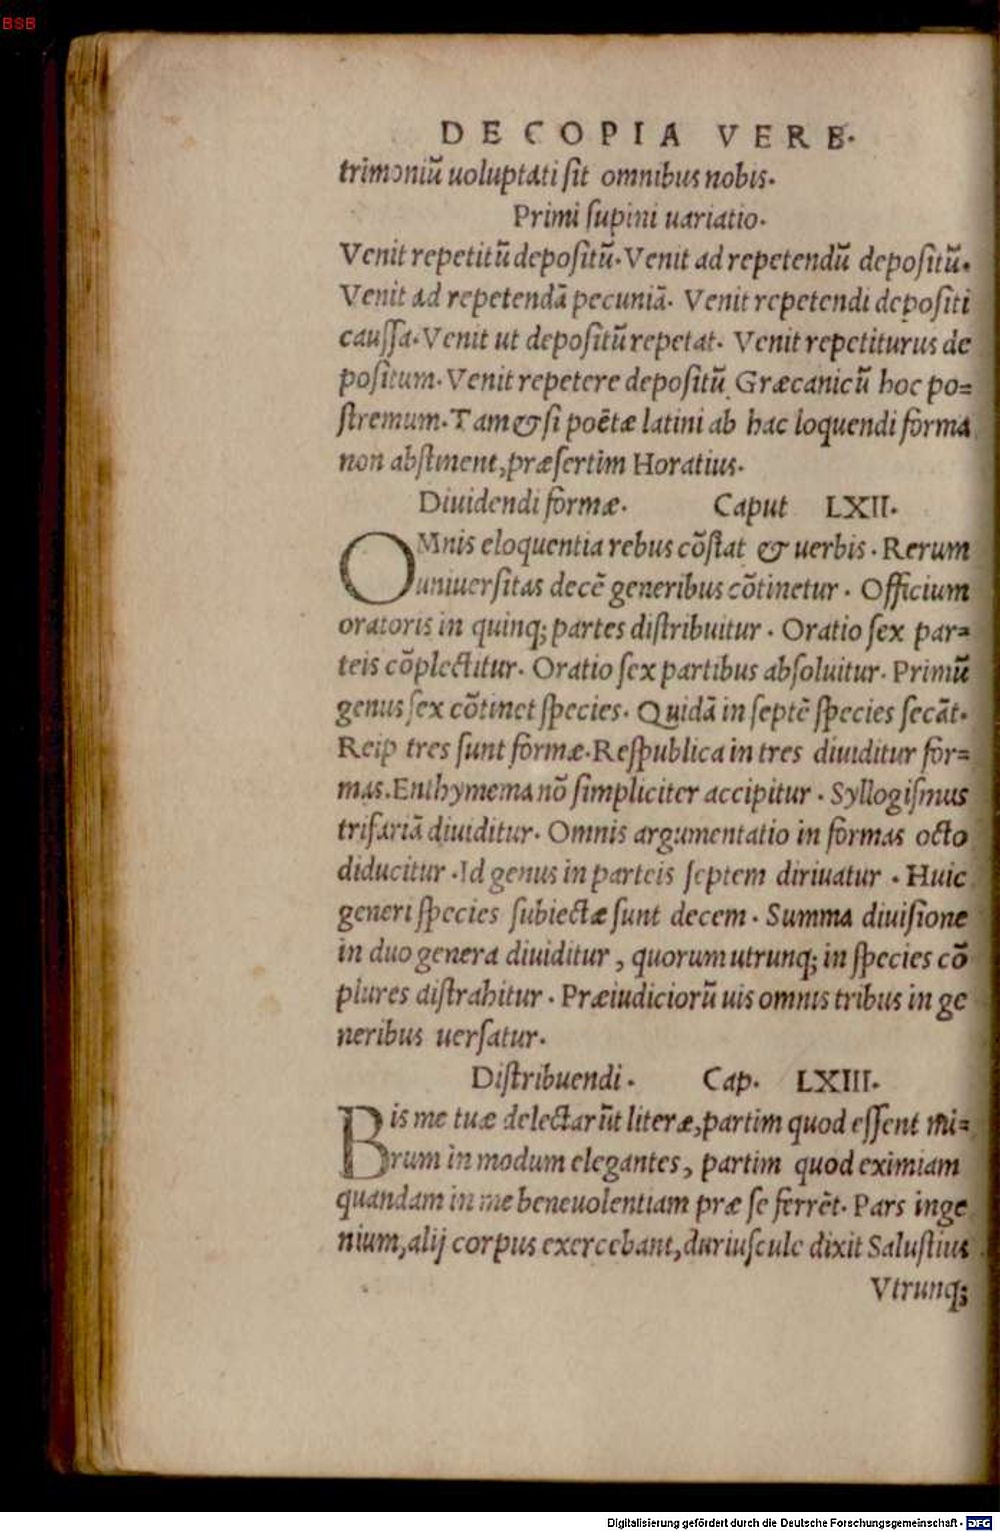 BSB
DE COPIA VERB.
trimoniũ uoluptati ſit omnibus nobis.
Primi ſupini uariatio.
Venit repetitũ depoſitũ. Venit ad repetendũ depoſitũ.
Venit ad repetendã pecuniã. Venit repetendi depoſiti
cauſſa. Venit ut depoſitũ repetat. Venit repetiturus de
poſitum. Venit repetere depoſitũ. Græcanicũ hoc po=
ſtremum. Tam&ſi poẽtæ latini ab hac loquendi forma
non abſtinent, præſertim Horatius.
Diuidendi formæ. Caput LXII.
OMnis eloquentia rebus cõſtat & uerbis. Rerum
uniuerſitas decẽ generibus cõtinetur. Officium
oratoris in quinq; partes diſtribuitur. Oratio ſex par=
teis cõplectitur. Oratio ſex partibus abſoluitur. Primũ
genus ſex cõtinet ſpecies. Quidã in ſeptẽ ſpecies ſecãt.
Reip tres ſunt formæ. Reſpublica in tres diuiditur for=
mas. Enthymema nõ ſimpliciter accipitur. Syllogiſmus
trifariã diuiditur. Omnis argumentatio in formas octo
diducitur. Id genus in parteis ſeptem diriuatur. Huic
generi ſpecies ſubiectæ ſunt decem. Summa diuiſione
in duo genera diuiditur, quorum utrunq; in ſpecies cõ
plures diſtrahitur. Præiudiciorũ uis omnis tribus in ge
neribus uerſatur.
Diſtribuendi. Cap. LXIII.
Bis me tuæ delectarũt literæ, partim quod eſſent mi=
rum in modum elegantes, partim quod eximiam
quandam in me beneuolentiam præ ſe ferrẽt. Pars inge
nium, alij corpus exercebant, duriuſcule dixit Saluſtius
Vtrunq;
Digitalisierung gefördert durch die Deutsche Forschungsgemeinschaft - DFG